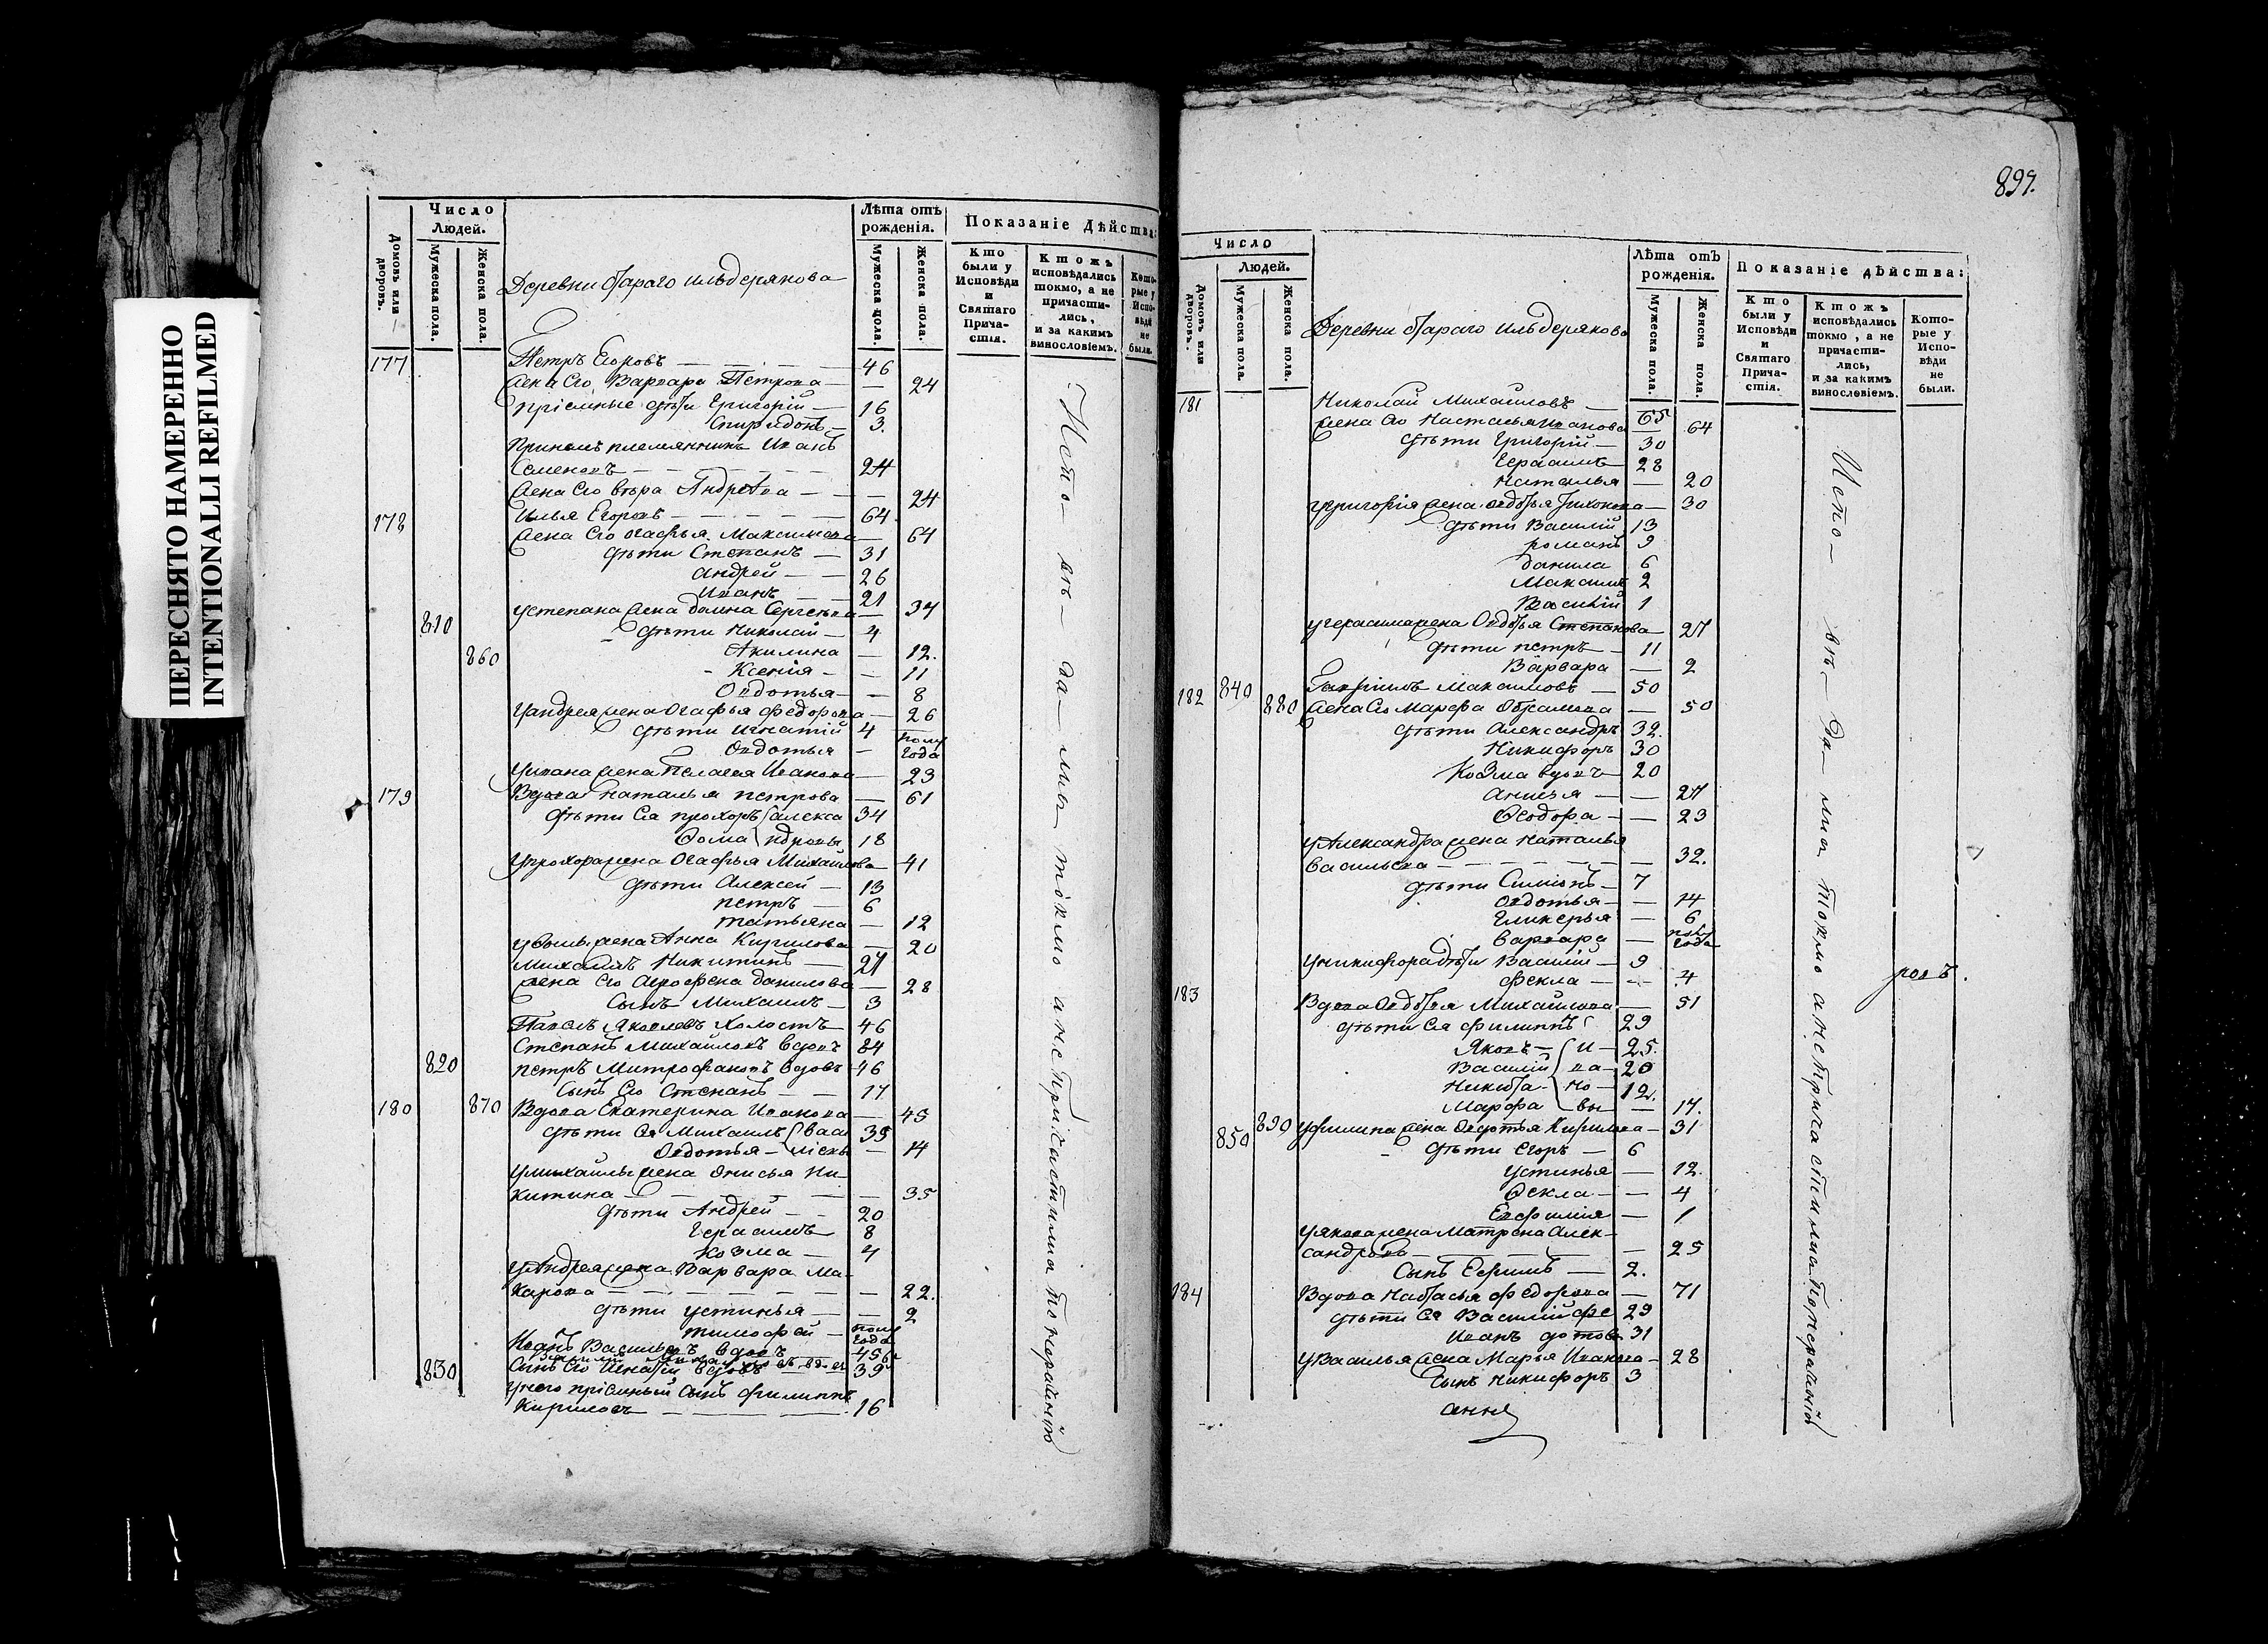 ПЕРЕСНЯТО НАМЕРЕННО
INTENTIONALLI REFILMED
Число
Людей.
Домовъ или дворовъ.
Мужеска пола.
Женска пола.
Деревни Стараго ильдерякова
Лѣта отъ рожденія.
Мужеска пола.
Женска пола.
Показаніе Дѣйства:
Кто были у Исповѣди и Святаго Прича-стія.
Ктожъ исповѣдались токмо, а не причасти-лись, и за какимъ винословіемъ.
Кото-рые у Испо-вѣди не были.
177 Петръ Егоровъ — 46
жена Его Варвара Петрова — 24
пріемные дѣти Григорій — 16
Спиридонъ — 3.
племянникъ Иванъ
Семеновъ — 24
жена Его Андреева — 24
178 Илья Егоровъ — 64
жена Его огафья Максимова — 64
дѣти Степанъ — 31
андрей — 26
Иванъ — 21
устепана жена домна Сергеева — 34
810 дѣти николай — 4
860 Акилина — 12.
Ксенія — 11
Овдотья — 8
уандрея жена Огафья федорова — 26
дѣти игнатій 4
Овдотья — полу года
уивана жена Пелагея Иванова — 23
179 Вдова наталья петрова — 61
дѣти Ея прохоръ алекса 34
Ѳома ндровы 18
упрохора жена Огафья Михайлова — 41
дѣти Алексей — 13
петръ — 6
татьяна — 12
уѲомы жена Анна Кирилова — 20
Михайлъ Никитинъ — 27
жена Его Огрофена данилова — 28
Сынъ Михаилъ — 3
Павелъ Яковлевъ холостъ — 46
Степанъ Михайловъ вдовъ 84
820 петръ Митрофановъ вдовъ 46
Сынъ Его Степанъ — 17
180 870 Вдова Екатерина Иванова — 45
дѣти Ея Михаилъ васи 35
Овдотья — льевы — 14
умихайлы жена Онисья Ни-
китина — 35
дѣти Андрей — 20
Герасимъ 8
Козма — 4
уАндрея жена Варвара Ма-
карова — 22.
дѣти устинья — 2
тимофей — полу года
Иванъ Васильевъ вдовъ 45
830 Сынъ Его Игнатій вдовъ 39
унего пріемный сынъ филиппъ
Кириловъ — 16
Испо-вѣ-да-лись токмо анепричастились понерадѣнію
899.
Число
Людей.
Домовъ или дворовъ.
Мужеска пола.
Женска пола.
Деревни Стараго ильдерякова
Лѣта отъ рожденія.
Мужеска пола.
Женска пола.
Показаніе дѣйства:
Кто были у Исповѣди и Святаго Прича-стія.
Ктожъ исповѣдались токмо, а не причасти-лись, и за какимъ винословіемъ.
Кото-рые у Испо-вѣди не были.
181 Николай Михайловъ — 65
жена Его Настасья Иванова — 64
дѣти Григорій — 30
Герасимъ 28
наталья — 20
угригорія жена овдотья Тихонова — 30
дѣти Василій 13
романъ 9
данила 6
Максимъ 2
Василій 1
угерасима жена Овдотья Степанова — 27
дѣти петръ — 11
Варвара — 2
182 840 Гаврiилъ Максимовъ — 50
880 жена Его Марфа Обрамова — 50
дѣти Александръ 32.
Никифоръ 30
Козма вдовъ — 20
анисья — 27
Ѳеодора — 23
уАлександра жена наталья
васильева — 32.
дѣти Симіонъ — 7
овдотья — 14
Гликерья — 6
варвара — полу года
уникифора дѣти Василій — 9
фекла — 4
183 Вдова Овдотья Михайлова — 51
дѣти Ея филиппъ 29
Яковъ — и — 25.
Василій ва — 20
Никита — но — 12.
Марфа вы — 17.
850 890 уфилипа жена Овдотья Кирилова — 31
дѣти Егоръ — 6
устинья — 12.
Ѳекла — 4
Евфимія — 1
уякова жена Матрена Алек-
сандрова — 25
Сынъ Ефимъ — 2.
184 Вдова Настасья федорова — 71
дѣти Ея Василій фе 29
Иванъ дотовы 31
уВасилья жена Марья Иванова — 28
Сынъ никифоръ 3
анна
Испо-вѣ-да-лись токмо анепричастились понерадѣнію